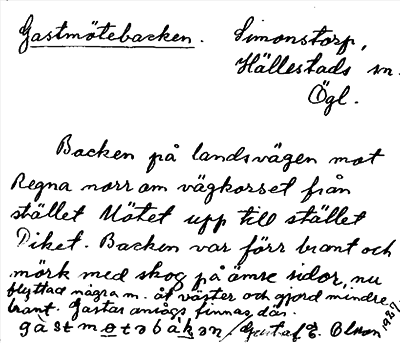 Gastmötebacken.
Simonstorp,
Hällestads sn.
Ögl.
Backen på landsvägen mot
Regna norr om vägkorset från
stället Mötet upp till stället
Diket. Backen var förr brant och
mörk med skog på ömse sidor, nu
flyttad några m. åt väster och gjord mindre
brant. Gastar ansågs finnas där.
gàstmøtəbàkən / Gustaf E. Olson 1927.